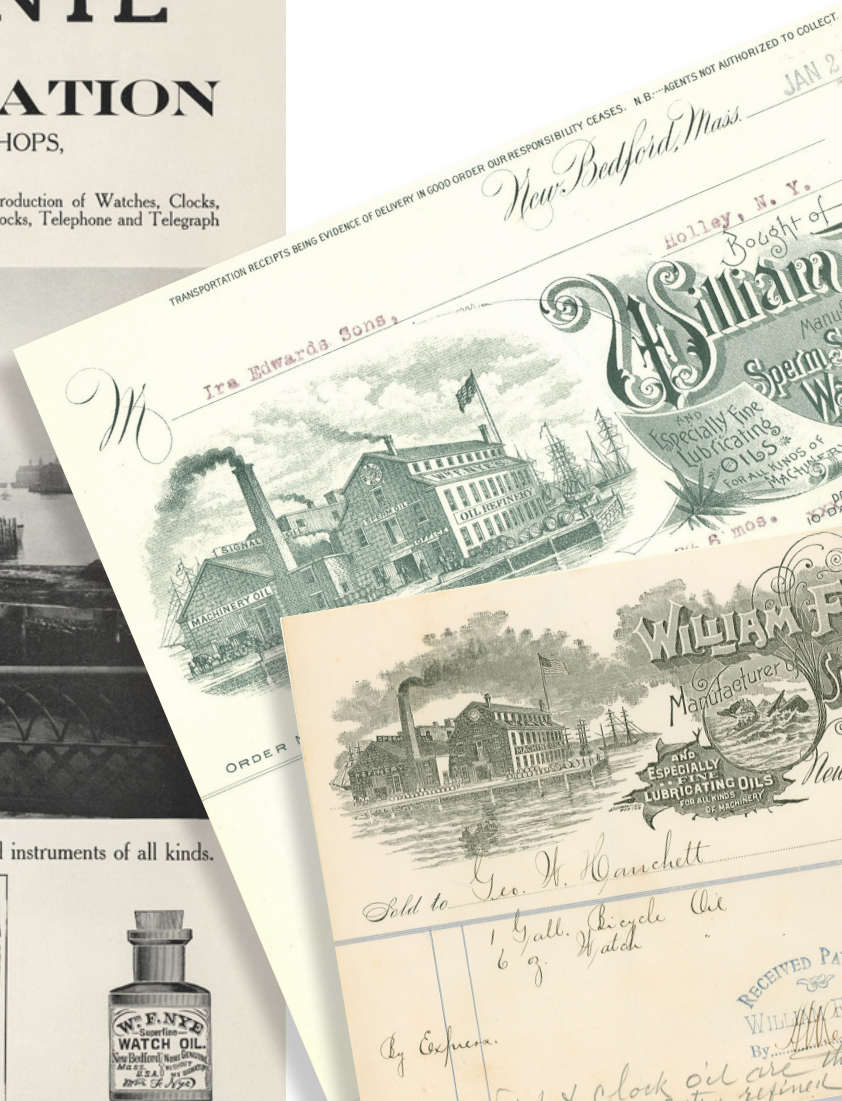 ATION
HOPS,
roduction of Watches, Clocks,
ocks, Telephone and Telegraph
instruments of all kinds.
Wm. F. NYE
Superfine
WATCH OIL.
New Bedford
Mass.
U.S.A.
NONE GENUINE
WITHOUT
MY SIGNATURE
Wm F Nye
TRANSPORTATION RECEIPTS BEING EVIDENCE OF DELIVERY IN GOOD ORDER OUR RESPONSIBILITY CEASES. N.B.—AGENTS NOT AUTHORIZED TO COLLECT.
New Bedford, Mass. JAN 2
Holley, N. Y.
M Ira Edwards Sons,
Bought of
William
Manuf
Sperm, S
Wa
AND
Especially Fine
Lubricating
OILS
FOR ALL KINDS OF
MACHINERY
W.F. NYE'S
OIL REFINERY
SPERM OIL
OFFICE
SIGNAL
MACHINERY OIL
6 mos.
ORDER
WILLIAM F
Manufacturer of
AND
ESPECIALLY
FINE
LUBRICATING OILS
FOR ALL KINDS
OF MACHINERY
New
Sold to Geo. W. Hanchett
1 Gall. Bicycle Oil
6 oz. Watch "
By Express.
RECEIVED PA
WILLIAM F
By
clock oil are th
refined